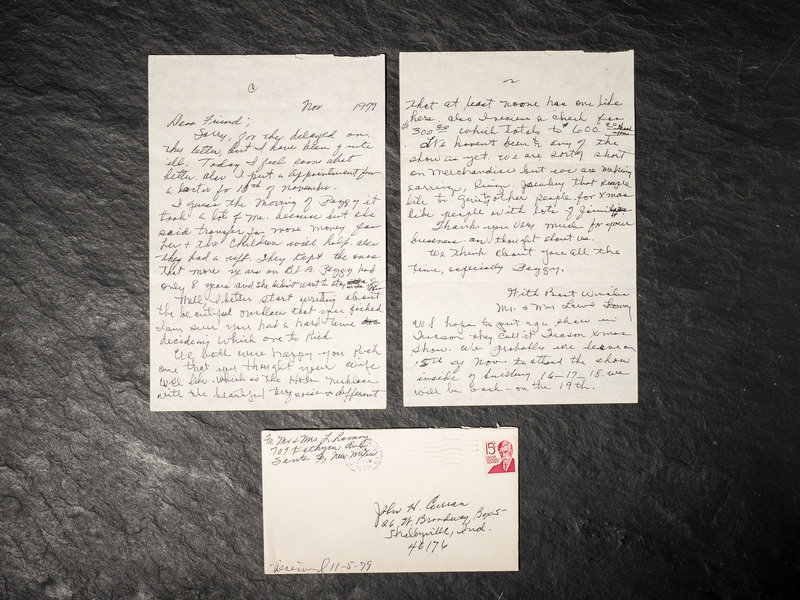 Nov 1979
Dear Friend,
Sorry, for the delayed on
this letter, but I have been quite
ill. Today I feel some what
better. also I put a appointment for
a doctor for 10th of November.
I guess the Moving of Peggy it
took a lot of me. because but she
said transfer for more money for
her + the children will help. also
they had a rift. They kept the ones
that more years on B I A. Peggy had
only 8 years and she didn't want to stay
Well I better start writing about
the beautiful necklace that you picked
I am sure you had a hard time
deciding which one to Pick.
We both were happy you Pick
one that you thought your wife
will like. which is the Hishi Necklace
with the beautiful turquoise + different
2
that at least no one has one like
hers. also I receive a check for
$300.00 which totals to $600.00
We haven't been to any of the
show as yet. we are sorty short
on Merchandise but we are making
earring, Ring, Jewelry that people
like to give other people for Xmas
like people with lots of
Thank you very much for your
business an thought about us.
We think about you all the
time, especially Peggy.
With Best Wishes
Mr. & Mrs Lewis Lomay
We hope to put up a show in
Tucson they call it Tucson Xmas
Show. We probally will leave on
15th of Nov to attend the show
inside of building 16-17-18. we
will be back on the 19th.
Fr. Mr & Mrs L Lomay
709 Kathryn Ave
Santa Fe New Mexico
15¢
John H. Curran
26 W. Broadway, Box 5
Shelbyville, Ind.
46176
Received 11-5-79